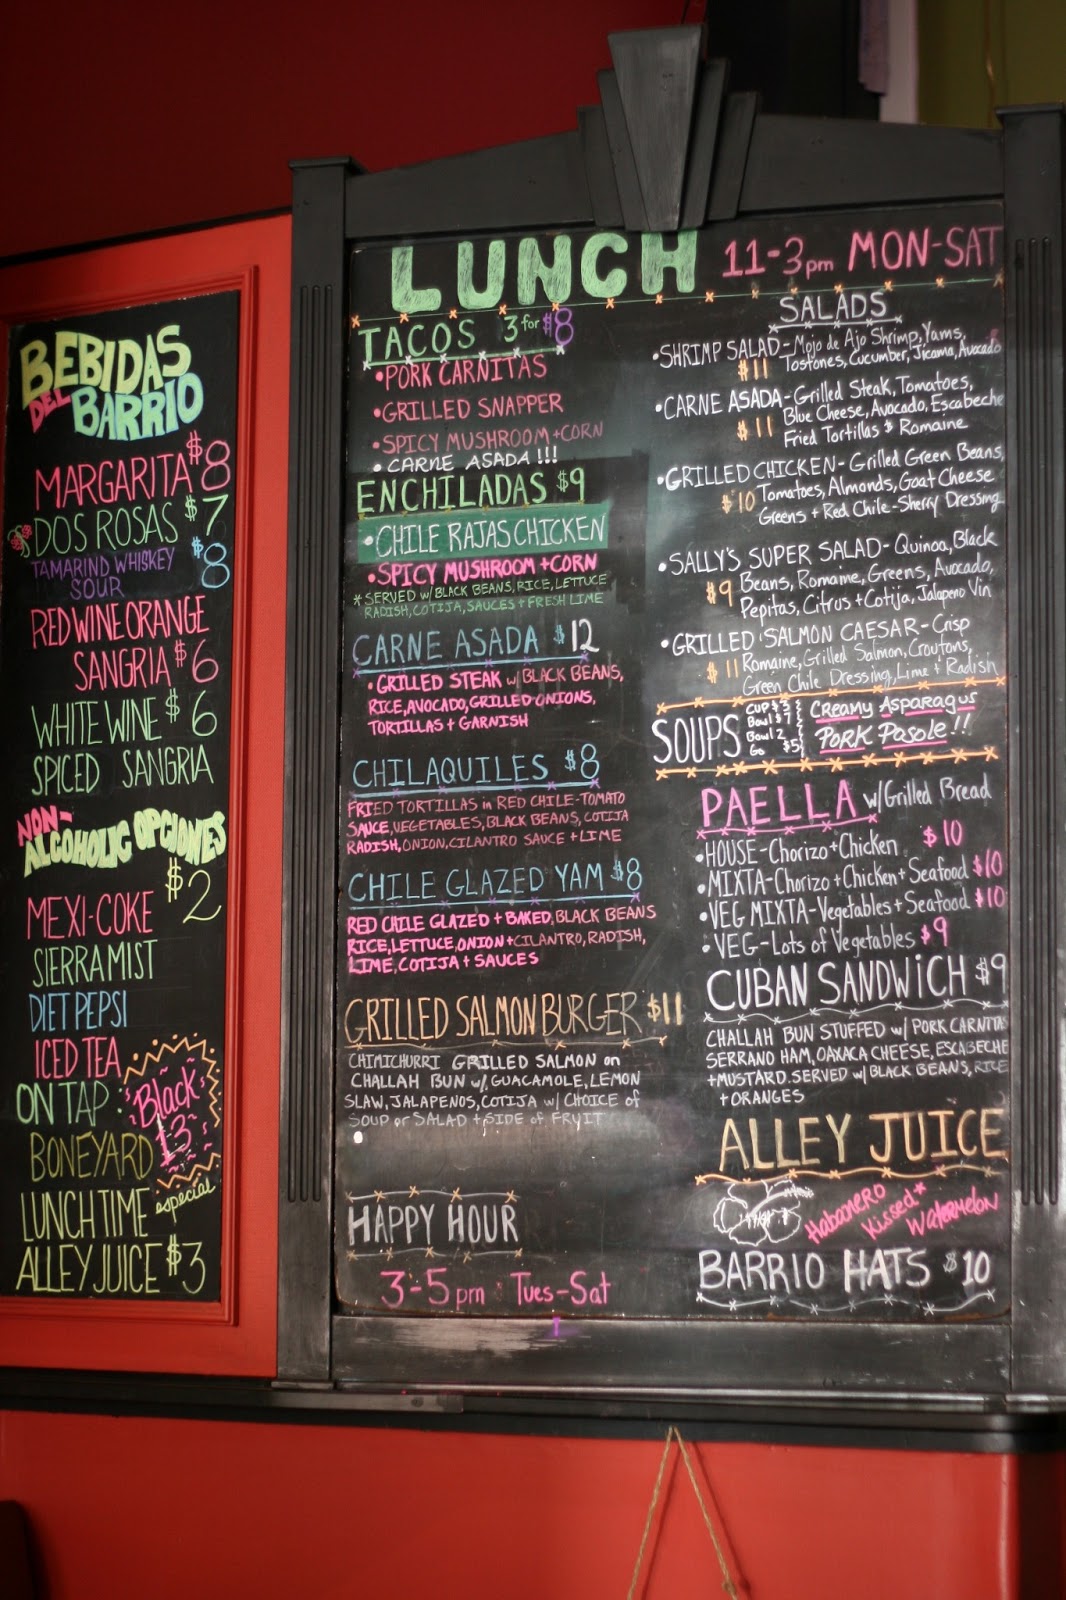 BEBIDAS
DEL BARRIO
MARGARITA $8
DOS ROSAS $7
TAMARIND WHISKEY
SOUR $8
RED WINE ORANGE
SANGRIA $6
WHITE WINE $6
SPICED SANGRIA
NON-
ALCOHOLIC OPCIONES
$2
MEXI-COKE
SIERRA MIST
DIET PEPSI
ICED TEA
ON TAP:
Black
13
BONEYARD
LUNCH TIME especial
ALLEY JUICE $3
LUNCH 11-3pm MON-SAT
TACOS 3 for $8
• PORK CARNITAS
• GRILLED SNAPPER
• SPICY MUSHROOM + CORN
• CARNE ASADA!!!
ENCHILADAS $9
• CHILE RAJAS CHICKEN
• SPICY MUSHROOM + CORN
* SERVED w/ BLACK BEANS, RICE, LETTUCE
RADISH, COTIJA, SAUCES + FRESH LIME
CARNE ASADA $12
• GRILLED STEAK w/ BLACK BEANS,
RICE, AVOCADO, GRILLED ONIONS,
TORTILLAS + GARNISH
CHILAQUILES $8
FRIED TORTILLAS in RED CHILE-TOMATO
SAUCE, VEGETABLES, BLACK BEANS, COTIJA
RADISH, ONION, CILANTRO SAUCE + LIME
CHILE GLAZED YAM $8
RED CHILE GLAZED + BAKED, BLACK BEANS
RICE, LETTUCE, ONION + CILANTRO, RADISH,
LIME, COTIJA + SAUCES
GRILLED SALMON BURGER $11
CHIMICHURRI GRILLED SALMON on
CHALLAH BUN w/, GUACAMOLE, LEMON
SLAW, JALAPENOS, COTIJA w/ CHOICE of
SOUP or SALAD + SIDE of FRUIT
HAPPY HOUR
3-5pm Tues-Sat
SALADS
• SHRIMP SALAD - Mojo de Ajo Shrimp, Yams,
$11 Tostones, Cucumber, Jicama, Avocado
• CARNE ASADA - Grilled Steak, Tomatoes,
Blue Cheese, Avocado, Escabeche
$11 Fried Tortillas & Romaine
• GRILLED CHICKEN - Grilled Green Beans,
$10 Tomatoes, Almonds, Goat Cheese
Greens + Red Chile-Sherry Dressing
• SALLY'S SUPER SALAD - Quinoa, Black
$9 Beans, Romaine, Greens, Avocado,
Pepitas, Citrus + Cotija, Jalapeno Vin
• GRILLED SALMON CAESAR - Crisp
$11 Romaine, Grilled Salmon, Croutons,
Green Chile Dressing, Lime + Radish
SOUPS
CUP $3
Bowl $7
Bowl 2
Go $5
Creamy Asparagus
Pork Pasole!!
PAELLA w/ Grilled Bread
• HOUSE - Chorizo + Chicken $10
• MIXTA - Chorizo + Chicken + Seafood $10
• VEG MIXTA - Vegetables + Seafood $10
• VEG - Lots of Vegetables $9
CUBAN SANDWiCH $9
CHALLAH BUN STUFFED w/ PORK CARNITAS
SERRANO HAM, OAXACA CHEESE, ESCABECHE
+ MUSTARD. SERVED w/ BLACK BEANS, RICE
+ ORANGES
ALLEY JUICE
Habanero
Kissed*
Watermelon
BARRIO HATS $10